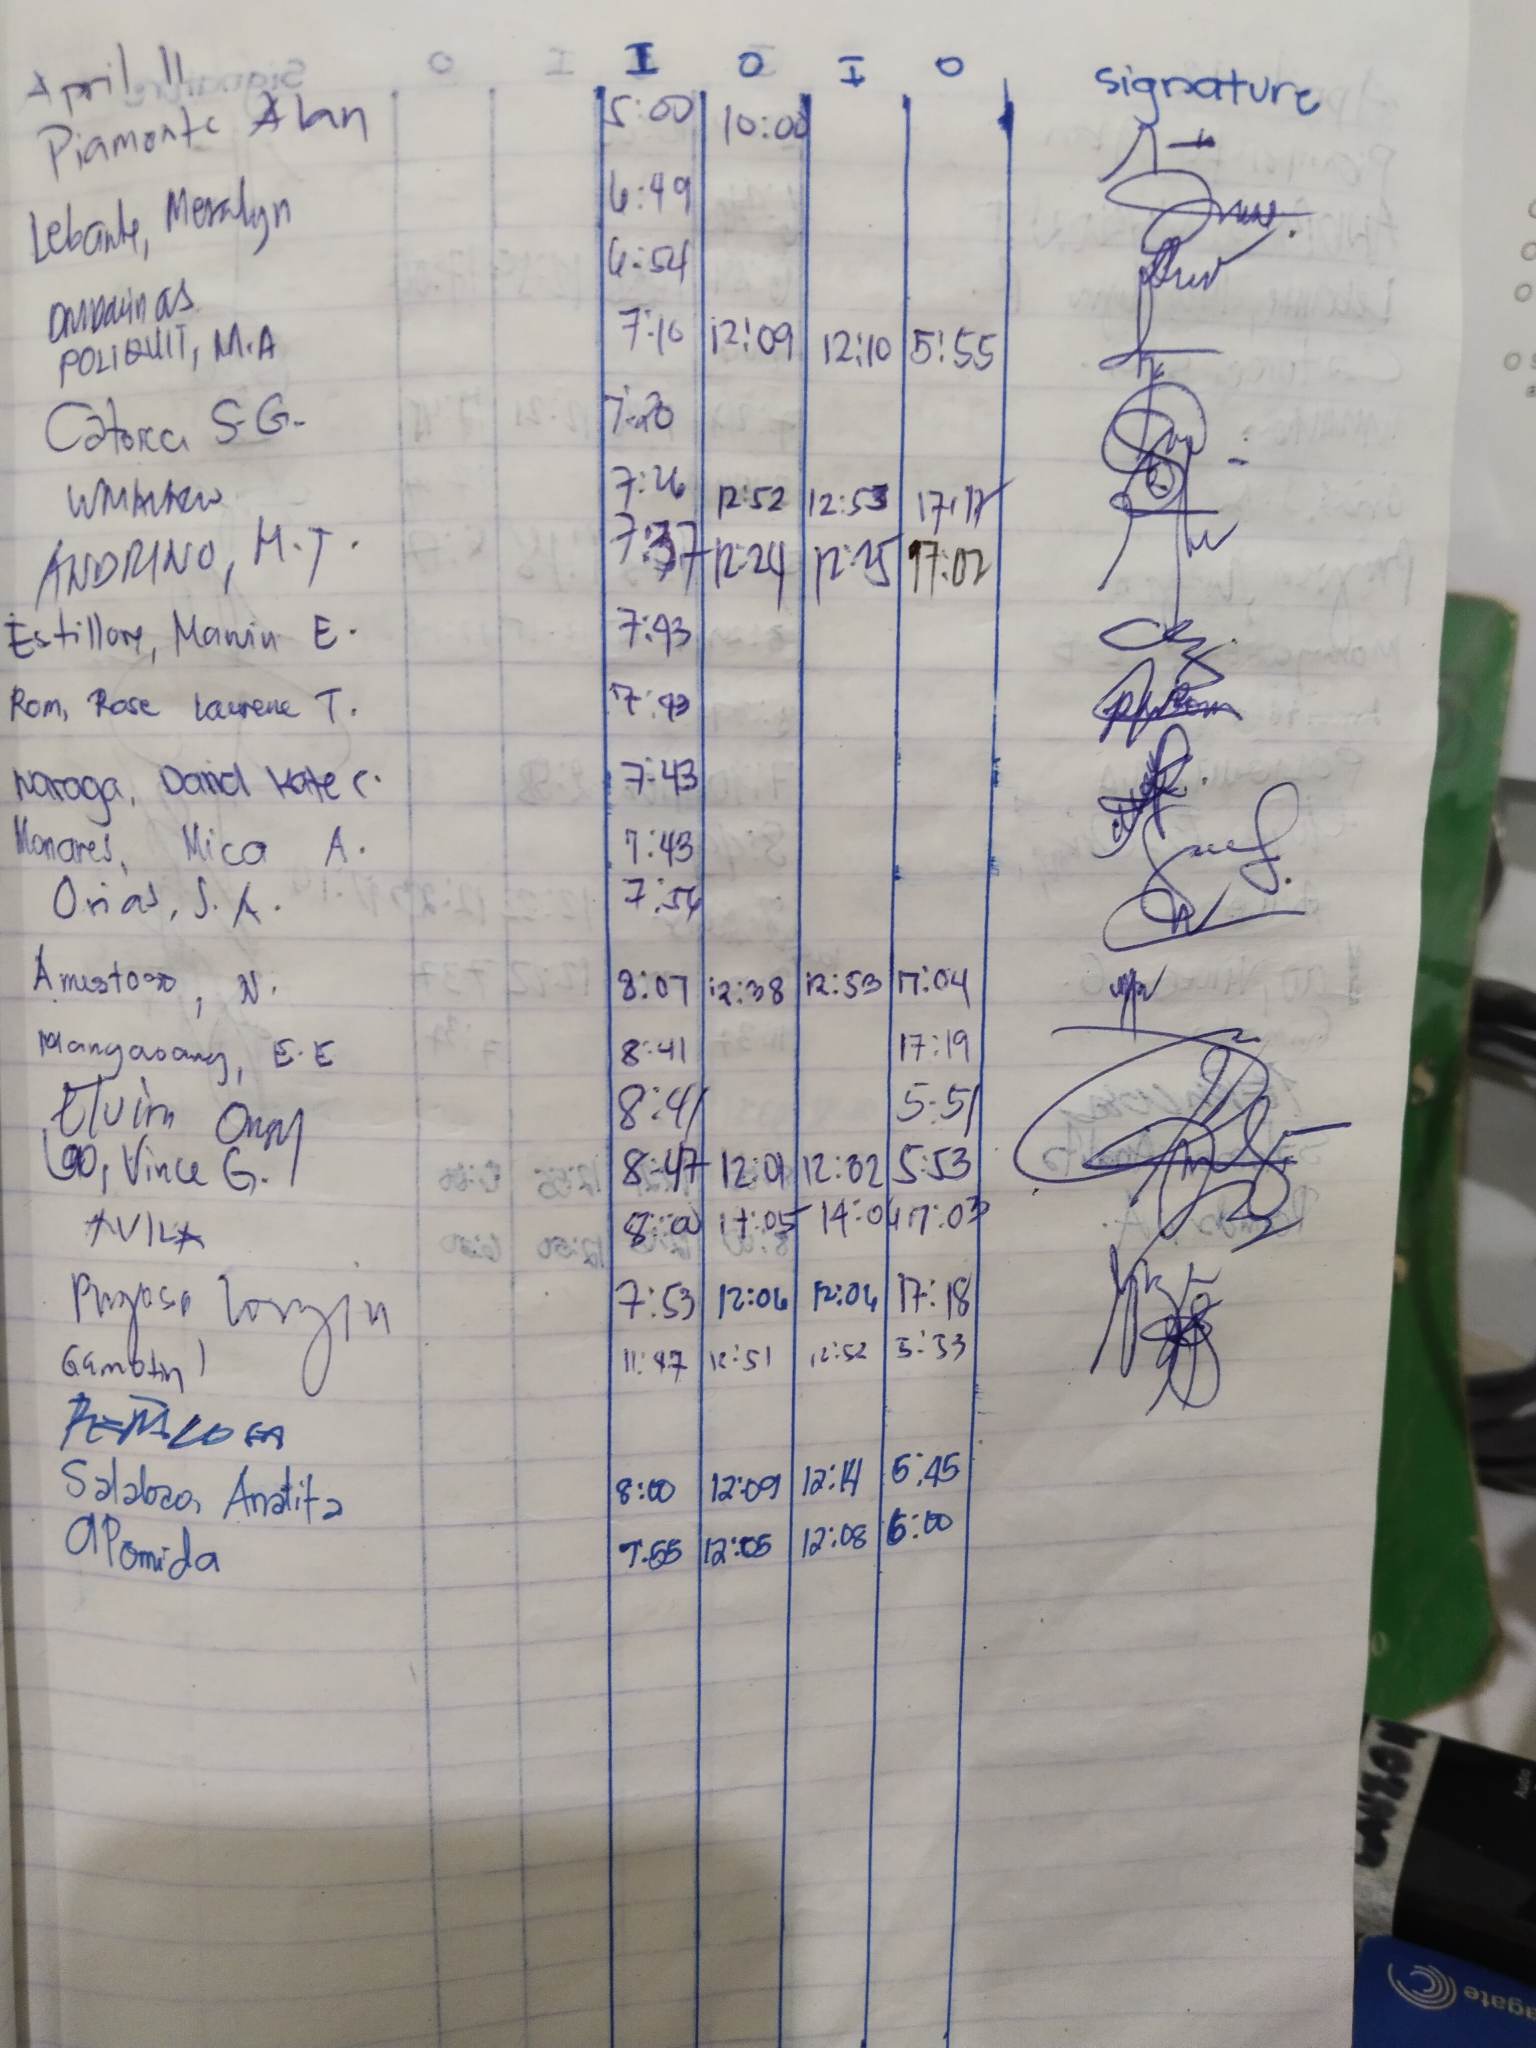 April 11 I O I O Signature
Piamonte Alan 5:00 10:00
Lebante, Meralyn 6:49
6:54
POLIQUIT, M.A 7:10 12:09 12:10 5:55
Catorca S.G. 7:20
7:26 12:52 12:53
ANDRINO, M.T. 7:37 12:24 12:25 17:02
Estillore, Marvin E. 7:43
Rom, Rose Laurene T. 7:43
Naraga, David Kate C. 7:43
Monares, Mica A. 7:43
Orias, S.A. 7:54
Amistoso, N. 8:07 12:38 12:53 17:04
Mangaoang, E.E 8:41 17:19
Elvira 8:41 5:51
Lao, Vince G. 8:47 12:01 12:02 5:53
AVILA 17:05 14:04 17:03
7:53 12:06 12:06 17:18
Gamotin 11:47 12:51 12:52 5:53
Salabao, Anatita 8:00 12:09 12:14 5:45
Apomida 7:55 12:05 12:08 6:00